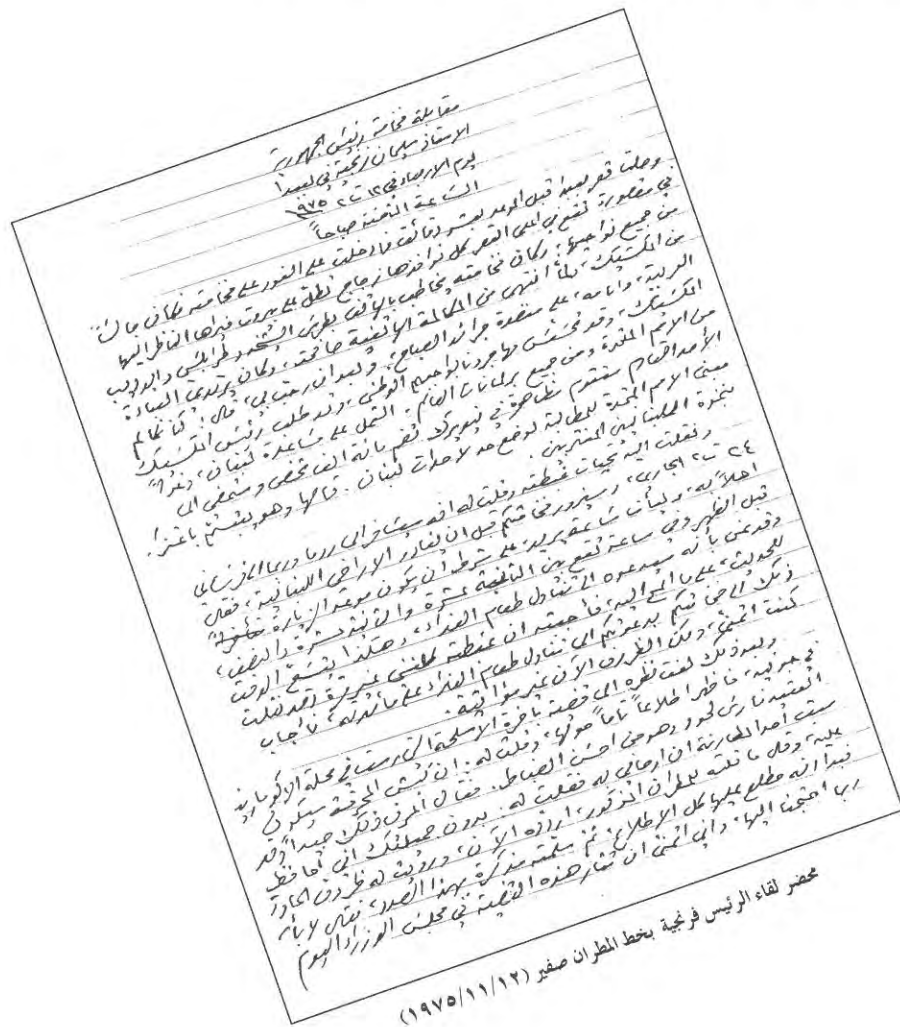 مقابلة فخامة رئيس الجمهورية
الاستاذ سليمان فرنجية في بعبدا
يوم الاربعاء في ١٢ ت٢ ١٩٧٥
الساعة الثامنة صباحاً
وصلت قصر بعبدا قبل الموعد بعشر دقائق فادخلت على الفور على فخامته فكان جالساً
في مقصورة تقع في اعلى القصر كل نوافذها زجاج تطل على بيروت فيراها الناظر اليها
من جميع نواحيها، وكان فخامته يخاطب بالهاتف بطرس الشدد وطرابلسي
من المكسيك، ولما انتهى من المكالمة الهاتفية صافحته، وكان يرتدي العباءة
العربية، وامامه على منضدة جرائد الصباح، وبعد ان رحب بي، قال: كنا نكالم
المكسيك، وقد تحسس مهاجرونا بواجبهم الوطني، وقد طلب رئيس المكسيك
من الامم المتحدة ومن جميع برلمانات العالم، العمل على مساعدة لبنان، وغداً
الأحد القادم ستقوم مظاهرة في نيويورك تضم مائة الف شخص وستمضي الى
مبنى الامم المتحدة للمطالبة لوضع حد لاحداث لبنان. قالها وهو يبتسم باعتزاز
بنخوة اللبنانيين المغتربين.
ونقلت اليه تحيات غبطته وقلت له انه سيسافر الى روما وربما الى فرنسا في
٢٤ ت٢ الجاري، وسيزور فخامتكم قبل ان يغادر الاراضي اللبنانية، فقال
اهلاً به، وليأت ساعة يريد، على شرط ان يكون موعد الزيارة
قبل الظهر وفي ساعة تقع بين الثانية عشرة والثانية عشرة والنصف،
وقد عنى بأنه سيدعوه الى تناول طعام الغداء، وهكذا يتسع الوقت
للحديث، على ما المح اليه، فأجبته ان غبطته كلمني غير مرة وقد نقلت
ذلك الى فخامتكم بدعوتكم الى تناول طعام الغداء على مائدته، فأجاب
كنت اتمنى، ولكن الظروف الآن غير مؤاتية.
وبعد ذلك لفت نظره الى قضية باخرة الاسلحة التي رست في محلة الاكوامارينا
في جونيه، فأظهر اطلاعاً تاماً حولها، وقلت له: ان كبش المحرقة سيكون
العقيد فارس لحود وهو من احسن الضباط. فقال اعرف ذلك جيداً وقد
سبق أحد المطارنة ان اوصاني له فقلت له: بدون جميلتك اني احافظ
عليه، وقال ما قلته للمطران المذكور، اردده الآن، ورويت له ظروف الحادث
فبدا انه مطلع عليها كل الاطلاع، ثم سلمته مذكرة بهذا الصدد، فقال لا بأس
ربما احتجنا اليها، واني اتمنى ان تثار هذه القضية في مجلس الوزراء اليوم
محضر لقاء الرئيس فرنجية بخط المطران صفير (١٩٧٥/١١/١٢)